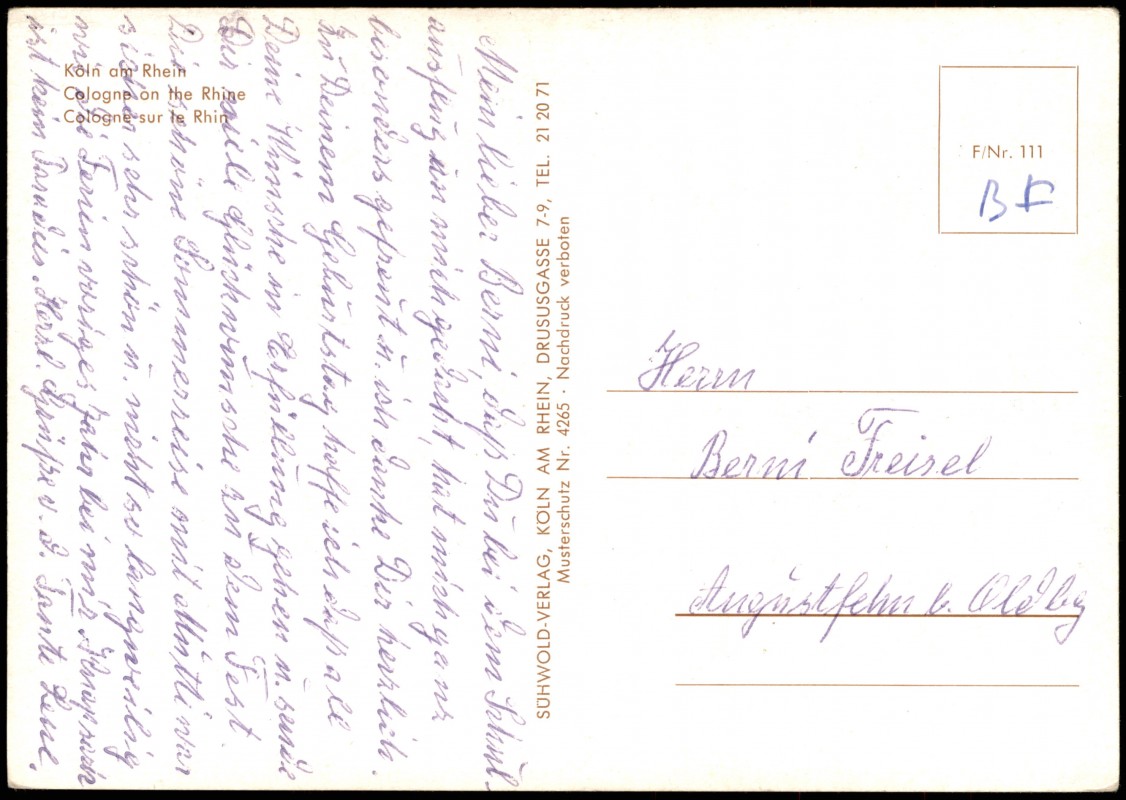 Köln am Rhein
Cologne on the Rhine
Cologne sur le Rhin
Mein lieber Berni, daß Du bei dem Schul-
ausflug an mich gedacht, hat mich ganz
besonders gefreut u. ich danke Dir herzlich.
Zu Deinem Geburtstag hoffe ich daß all
Deine Wünsche in Erfüllung gehen u. sende
Dir viele Glückwünsche zu dem Fest.
Die schöne Sommerreise mit Mutti war
sicher sehr schön u. nicht so langweilig
wie die Ferien voriges Jahr bei mir.
ist kein Paradies. Herzl. Grüße v. D. Tante
SÜHWOLD-VERLAG, KÖLN AM RHEIN, DRUSUSGASSE 7-9, TEL. 21 20 71
Musterschutz Nr. 4265 · Nachdruck verboten
F/Nr. 111
BF
Herrn
Berni Freisel
Augustfehn b. Oldbg